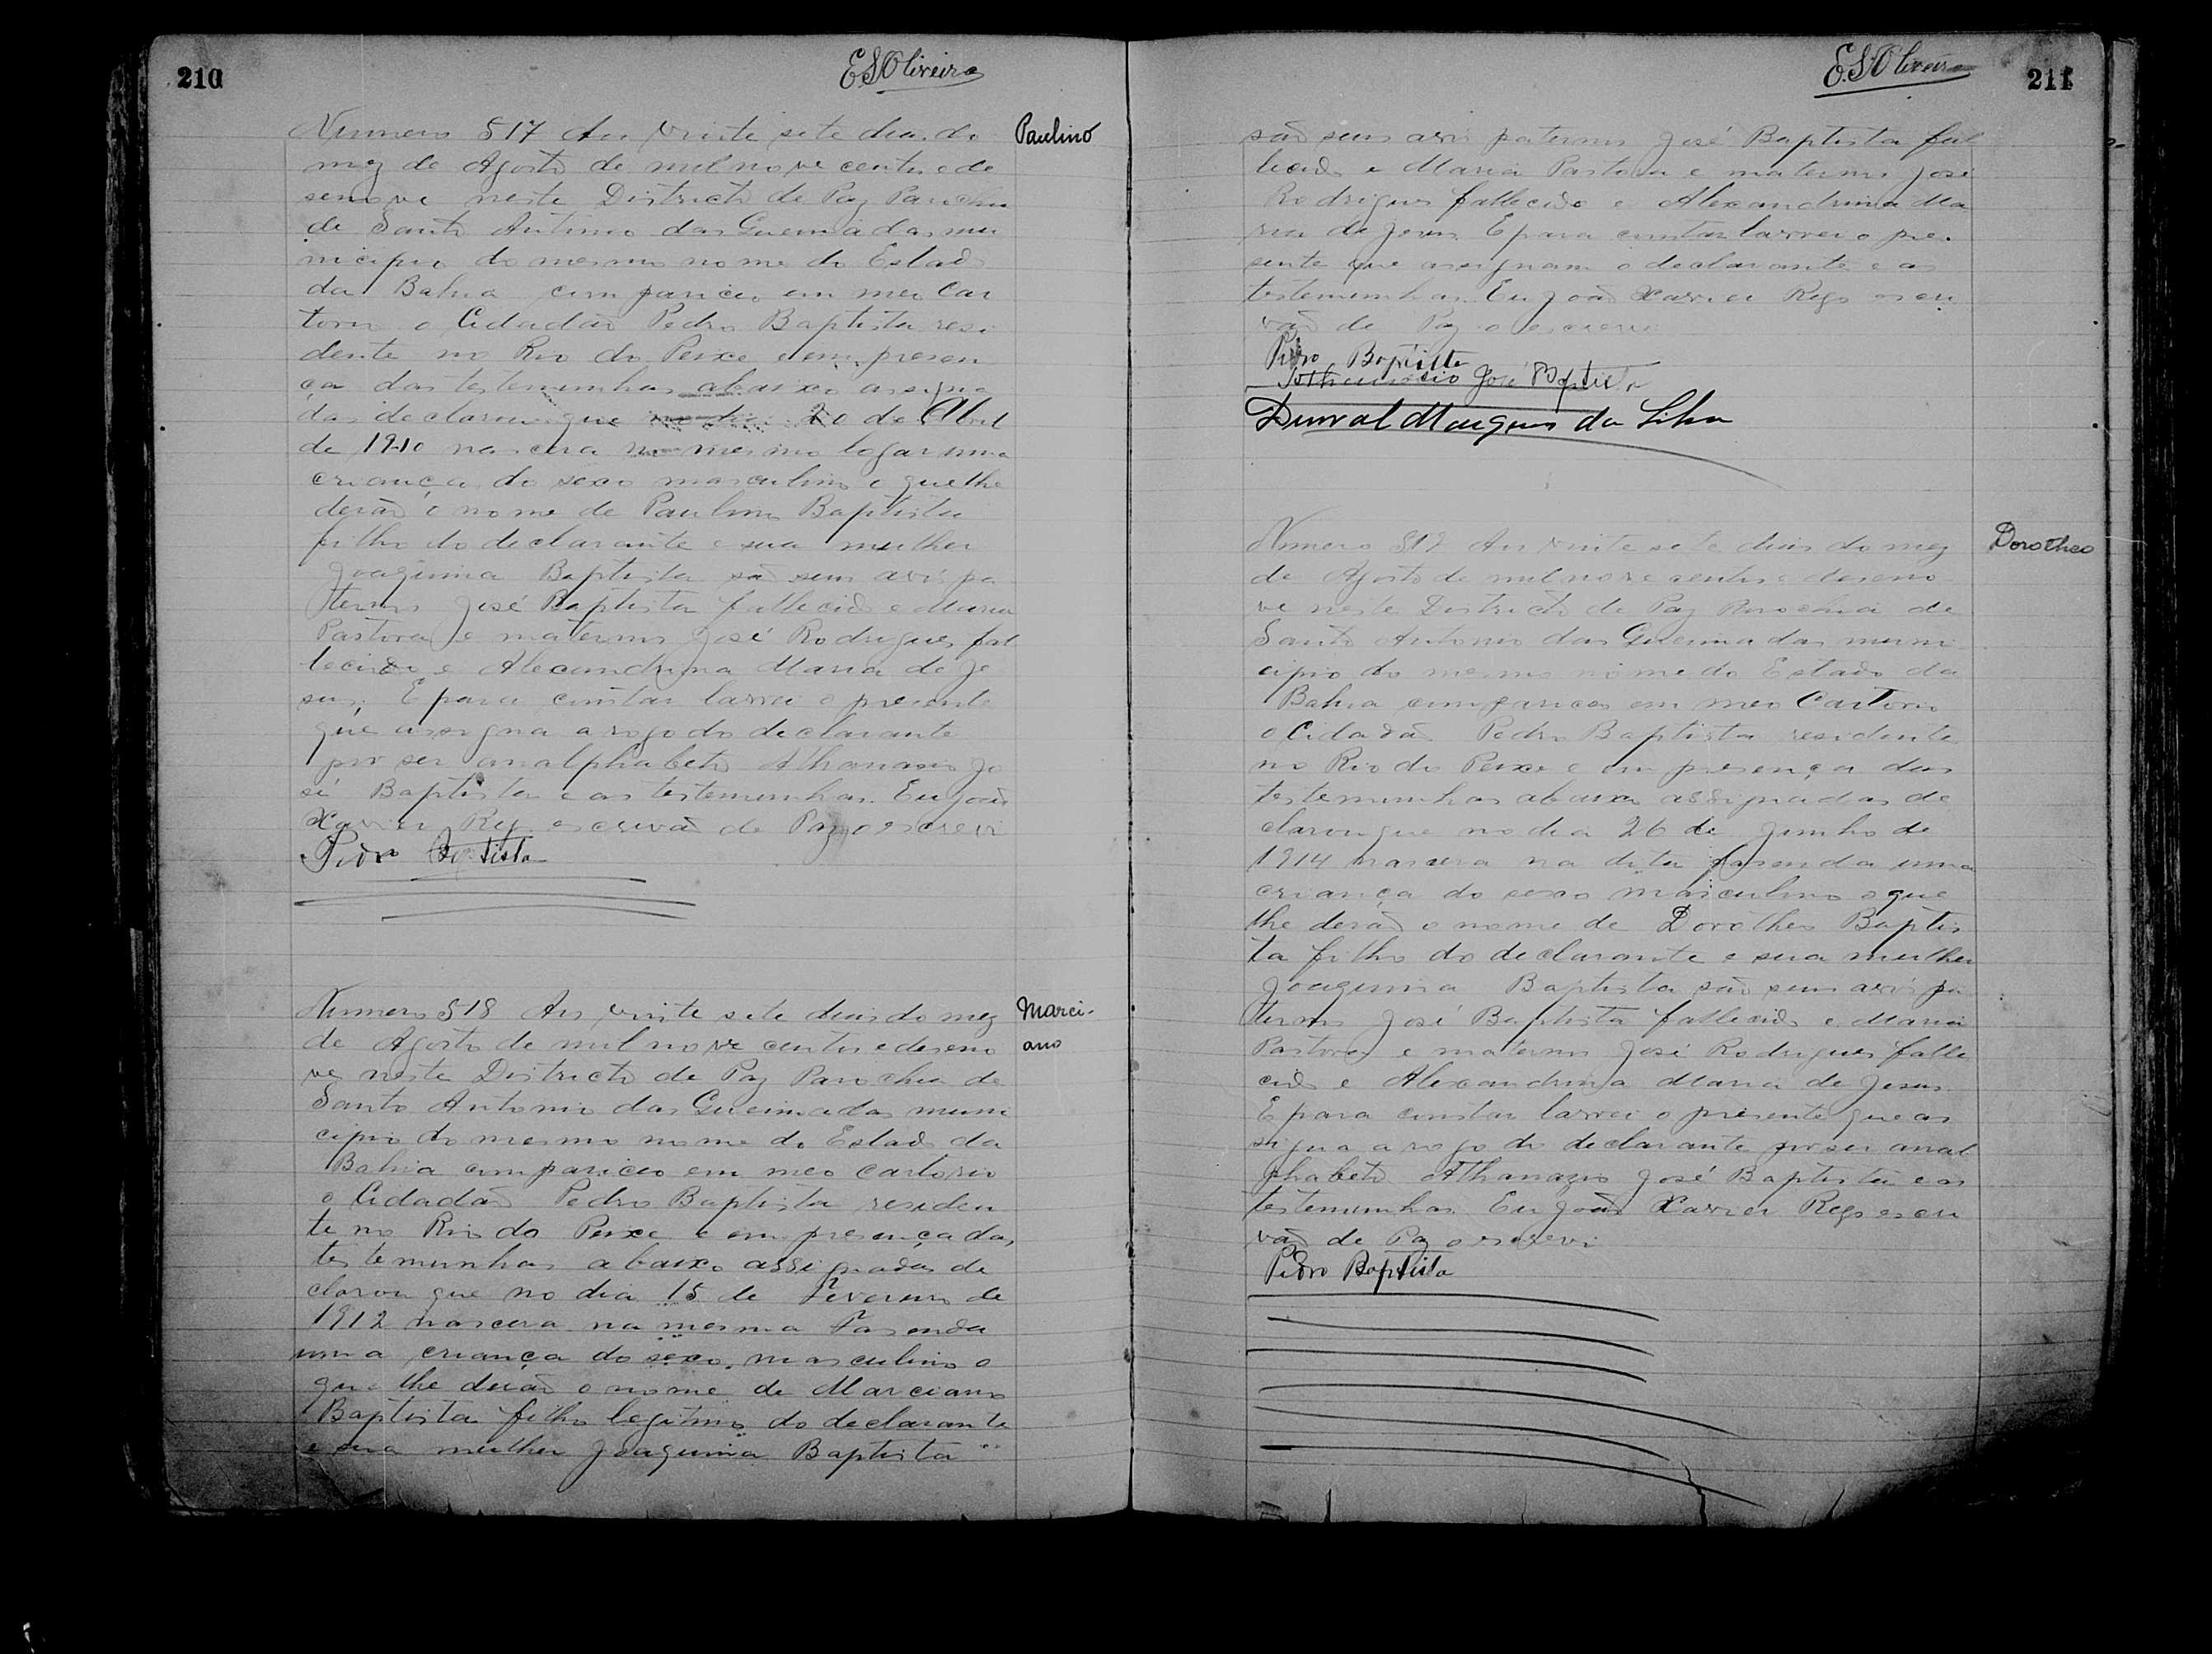 210
E.S.Oliveira
Numero 517 Aos vinte sete dias do
Paulino
mez de Agosto de mil nove centos e de
senove neste Districto de Paz Parochia
de Santo Antonio das Queimadas mu
nicipio do mesmo nome do Estado
da Bahia compareceo em meo Car
torio o Cidadão Pedro Baptista resi
dente no Rio do Peixe e em presen
ça das testemunhas abaixo assigna
das declarou que 20 de Abril
de 1910 nascera no mesmo logar uma
criança do sexo masculino e que lhe
derão o nome de Paulino Baptista
filho do declarante e sua mulher
Joaquina Baptista são seus avós pa
ternos José Baptista fallecido e Maria
Pastora e maternos José Rodrigues fal
lecido e Alexandrina Maria de Je
sus. E para constar lavrei o presente
que assigna a rogo do declarante
por ser analphabeto Athanasio Jo
sé Baptista e as testemunhas. Eu João
Xavier Rego escrivão de Paz o escrevi
Pedro Baptista
Numero 518 Aos vinte sete dias do mez
Marci-
ano
de Agosto de mil nove centos e deseno
ve neste Districto de Paz Parochia de
Santo Antonio das Queimadas muni
cipio do mesmo nome do Estado da
Bahia compareceo em meo cartorio
o Cidadão Pedro Baptista residen
te no Rio do Peixe e em presença das
testemunhas abaixo assignadas de
clarou que no dia 15 de Fevereiro de
1912 nascera na mesma Fasenda
uma criança do sexo masculino o
que lhe derão o nome de Marciano
Baptista filho legitimo do declarante
e sua mulher Joaquina Baptista
E.S.Oliveira
211
são seus avós paternos José Baptista fal
lecido e Maria Pastora e maternos José
Rodrigues fallecido e Alexandrina Ma
ria de Jesus. E para constar lavrei o pre.
sente que assignam o declarante e as
testemunhas. Eu João Xavier Rego escri
vão de Paz o escrevi
Pedro Baptista
José Baptista
Durval Marques da Silva
Numero 519 Aos vinte sete dias do mez
Dorotheo
de Agosto de mil nove centos e deseno
ve neste Districto de Paz Parochia de
Santo Antonio das Queimadas muni
cipio do mesmo nome do Estado da
Bahia compareceo em meo Cartorio
o Cidadão Pedro Baptista residente
no Rio do Peixe e em presença das
testemunhas abaixo assignadas de
clarou que no dia 26 de Junho de
1914 nascera na dita fasenda uma
criança do sexo masculino o que
lhe derão o nome de Dorotheo Baptis
ta filho do declarante e sua mulher
Joaquina Baptista são seus avós pa
ternos José Baptista fallecido e Maria
Pastora e maternos José Rodrigues falle
cido e Alexandrina Maria de Jesus.
E para constar lavrei o presente que as
signa a rogo do declarante por ser anal
phabeto Athanazio José Baptista e as
testemunhas. Eu João Xavier Rego escri
vão de Paz o escrevi
Pedro Baptista